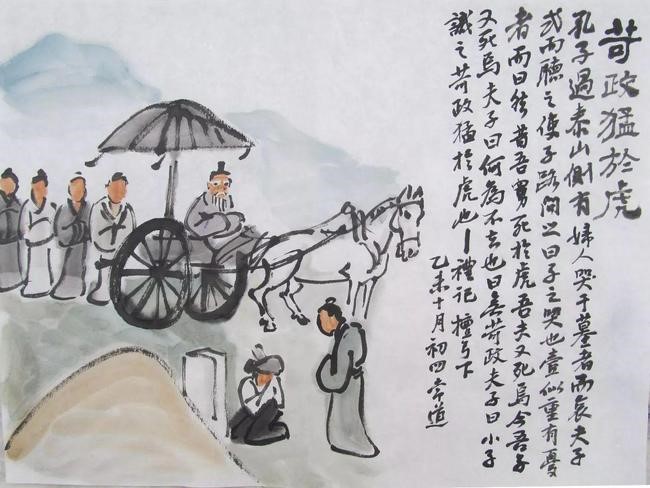 苛政猛於虎
孔子過泰山側有婦人哭于墓者而哀夫子
式而聽之使子路问之曰子之哭也壹似重有憂
者而曰然昔吾舅死於虎吾夫又死焉今吾子
又死焉夫子曰何為不去也曰無苛政夫子曰小子
識之苛政猛於虎也—禮記 檀弓下
乙未十月初四常道